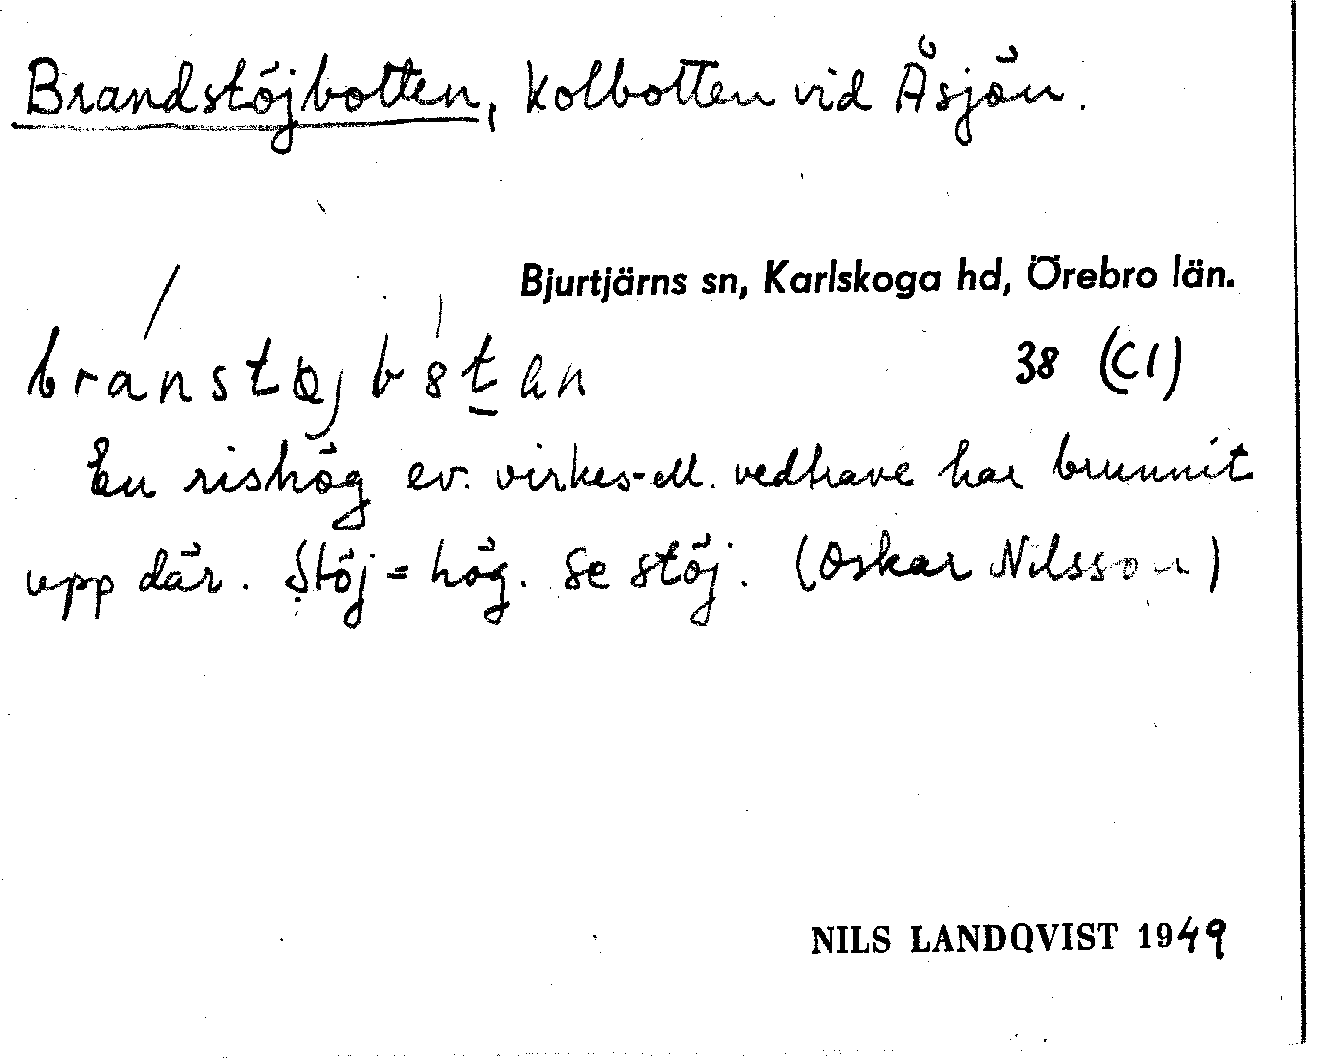 Brandstöjbotten, kolbotten vid Åsjön.
Bjurtjärns sn, Karlskoga hd, Örebro län.
38 (C1)
En rishög ev. virkes- ell. vedtrave har brunnit
upp där. Stöj = hög. Se stöj. (Oskar Nilsson)
NILS LANDQVIST 1949